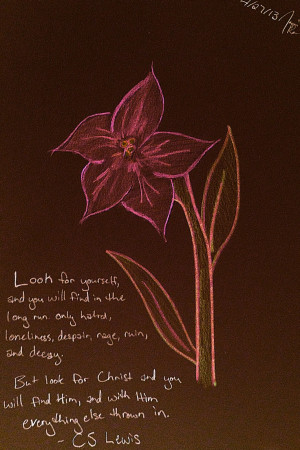 Look for yourself,
and you will find in the
long run only hatred,
loneliness, despair, rage, ruin,
and decay.
But look for Christ and you
will find Him, and with Him
everything else thrown in.
- CS Lewis